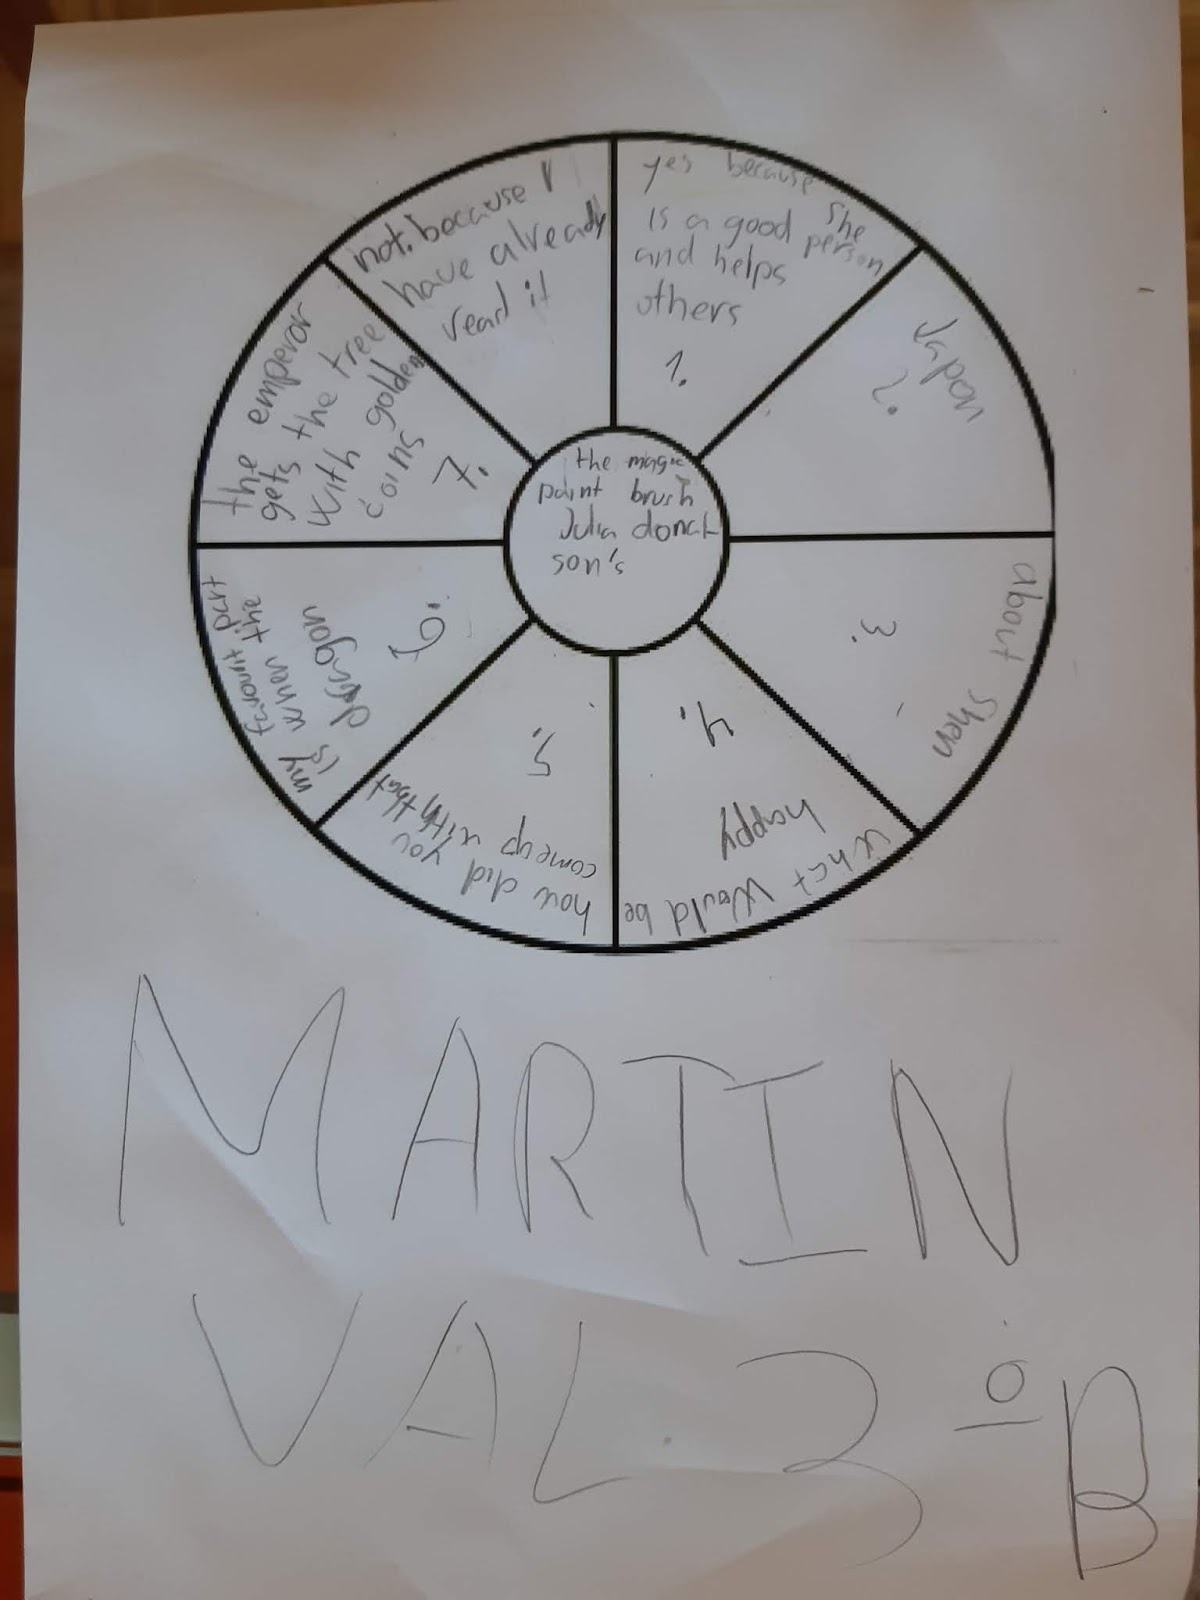 the magic
paint brush
Julia donal
son's
yes because she
is a good person
and helps
others
1.
Japon
2.
about Shen
3.
what would be
happy
4.
how did you
come up with that
5.
my favourit part
is when the
dragon
6.
the emperor
gets the tree
with golden
coins
7.
not. because I
have already
read it
MARTIN
VAL 3º B